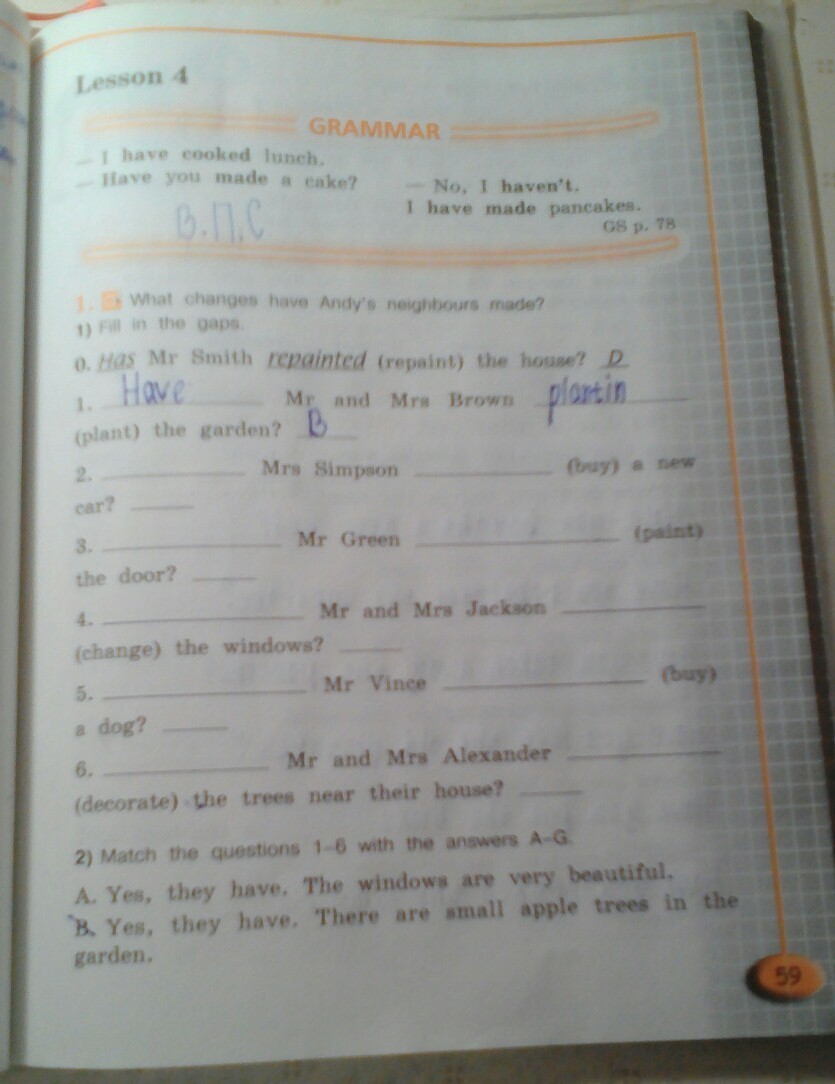 Lesson 4
GRAMMAR
— I have cooked lunch.
— Have you made a cake? — No, I haven't.
I have made pancakes.
В.П.С
GS p. 78
1. What changes have Andy's neighbours made?
1) Fill in the gaps.
0. Has Mr Smith repainted (repaint) the house? D
1. Have Mr and Mrs Brown plantin
(plant) the garden? B
2. ______ Mrs Simpson ______ (buy) a new
car? ____
3. ______ Mr Green ______ (paint)
the door? ____
4. ______ Mr and Mrs Jackson ______
(change) the windows? ____
5. ______ Mr Vince ______ (buy)
a dog? ____
6. ______ Mr and Mrs Alexander ______
(decorate) the trees near their house? ____
2) Match the questions 1–6 with the answers A–G.
A. Yes, they have. The windows are very beautiful.
B. Yes, they have. There are small apple trees in the
garden.
59